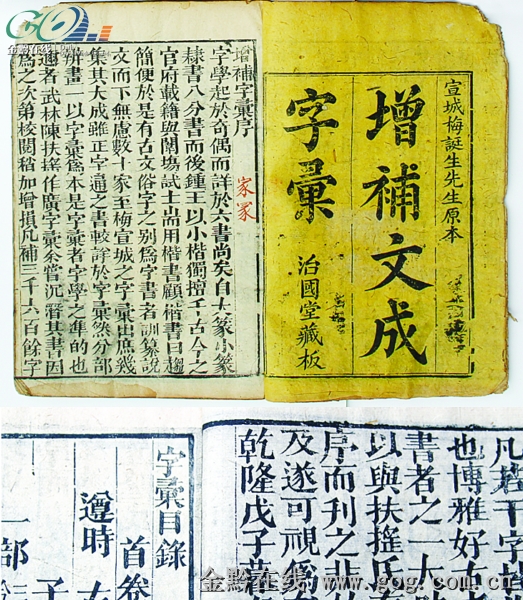 金黔在线
宣城梅誕生先生原本
增補文成
字彙
治國堂藏板
增補字彙序
家冢
字學起於奇偶而詳於六書尚矣自大篆小篆
隸書八分書而後鍾王以小楷獨擅千古今之
官府載籍與闈塲試士耑用楷書顧楷書日趨
簡便於是有古文俗字之別爲字書者訓篆說
文而下無慮數十家至梅宣城之字彙出庶幾
集其大成雖正字通之書較詳於字彙然分部
辨畫一以字彙爲本是字彙者字學之準的也
邇者武林陳扶搖作廣字彙叅當沉潛其書因
爲之次第校閱稍加增損凡補三千六百餘字
凡若干字
也博雅好古
書者之一大
以與扶搖氏
序而刊之非
及遂可視
乾隆戊子
字彙目錄
首卷
遵時
子
一部
金黔在线 www.gog.com.cn